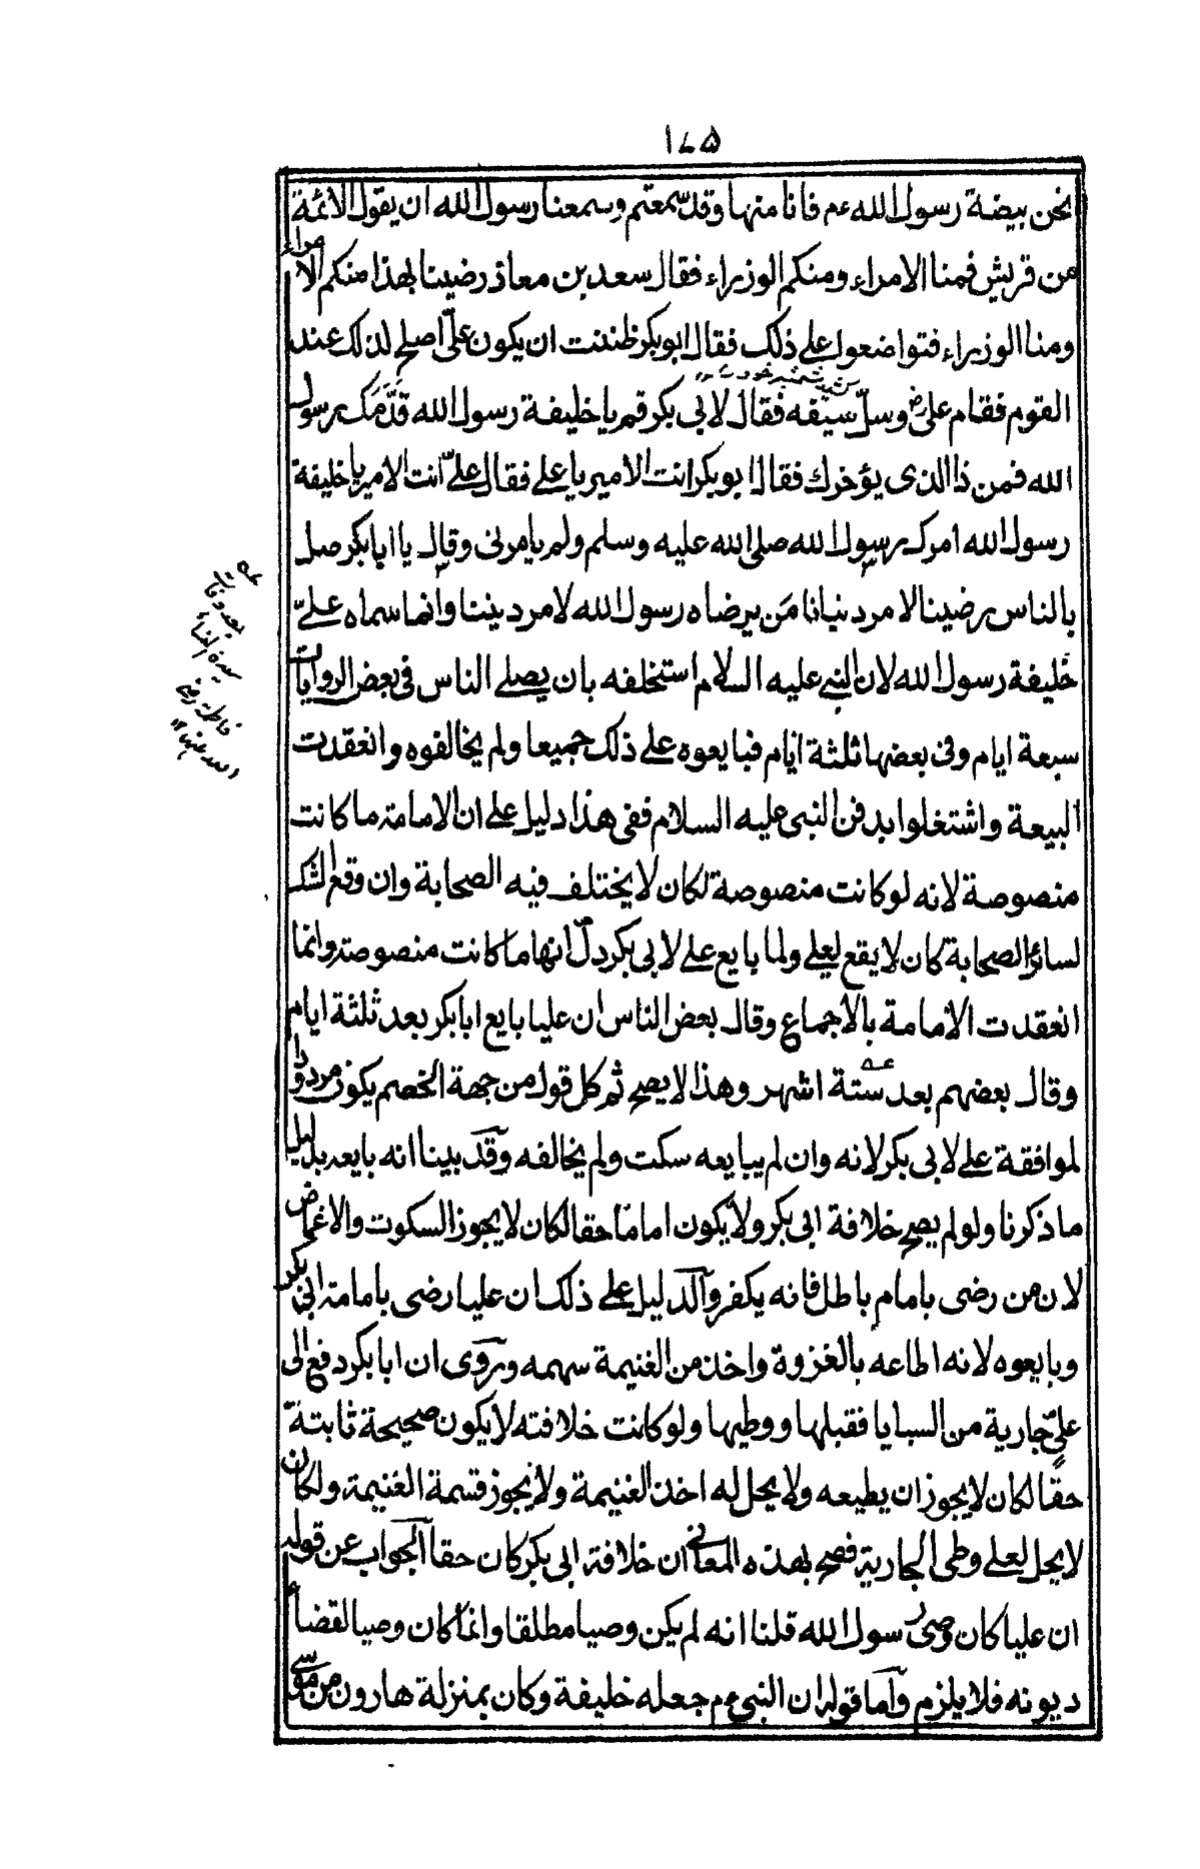 ١٧٥
نحن بيضة رسول الله عم فانا منها وقد سمعتم وسمعنا رسول الله ان يقول الائمة
من قريش فمنا الامراء ومنكم الوزراء فقال سعد بن معاذ رضينا بهذا منكم الامراء
ومنا الوزراء فتواضعوا على ذلك فقال ابو بكر ظننت ان يكون علىّ اصلح لذلك عند
القوم فقام على رض وسلّ سيفه فقال لابى بكر قم يا خليفة رسول الله قدّمك رسول
الله فمن ذا الذى يؤخرك فقال ابو بكر انت الامير يا على فقال علىّ انت الامير يا خليفة
رسول الله امرك رسول الله صلى الله عليه وسلم ولم يامرنى وقال يا ابا بكر صل
بالناس رضينا لامر دنيانا من يرضاه رسول الله لامر ديننا وانما سماه علىّ
خليفة رسول الله لان النبى عليه السلام استخلفه بان يصلى الناس فى بعض الروايات
سبعة ايام وفى بعضها ثلثة ايام فبايعوه على ذلك جميعا ولم يخالفوه وانعقدت
البيعة واشتغلوا بدفن النبى عليه السلام ففى هذا دليل على ان الامامة ما كانت
منصوصة لانه لو كانت منصوصة لكان لا يختلف فيه الصحابة وان وقع الشك
لسائر الصحابة كان لا يقع لعلى ولما بايع على لابى بكر دلّ انها ما كانت منصوصة وانما
انعقدت الامامة بالاجماع وقال بعض الناس ان عليا بايع ابا بكر بعد ثلثة ايام
وقال بعضهم بعد ستة اشهر وهذا لا يصح ثم كل قول من جهة الخصم يكون مردودا
لموافقة على لابى بكر لانه وان لم يبايعه سكت ولم يخالفه وقد بينا انه بايعه بدليل
ما ذكرنا ولو لم يصح خلافة ابى بكر ولا يكون اماما حقا لكان لا يجوز السكوت والاغماض
لان من رضى بامام باطل فانه يكفر والدليل على ذلك ان عليا رضى بامامة ابى بكر
وبايعوه لانه اطاعه بالغزوة واخذ من الغنيمة سهمه وروى ان ابا بكر دفع الى
علىّ جارية من السبايا فقبلها ووطيها ولو كانت خلافته لا يكون صحيحة ثابتة
حقا لكان لا يجوز ان يطيعه ولا يحل له اخذ الغنيمة ولا يجوز قسمة الغنيمة ولكان
لا يحل لعلى وطى الجارية فصح بهذه المعانى ان خلافة ابى بكر كان حقا الجواب عن قوله
ان عليا كان وصى رسول الله قلنا انه لم يكن وصيا مطلقا وانما كان وصيا لقضاء
ديونه فلا يلزم واما قوله ان النبى عم جعله خليفة وكان بمنزلة هارون من موسى
عه
بعد وفات
سيدة النساء
فاطمة رضى
الله عنها ١٢